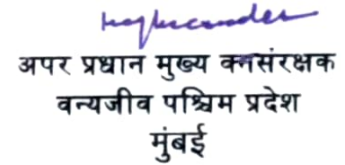 अपर प्रधान मुख्य वनसंरक्षक
वन्यजीव पश्चिम प्रदेश
मुंबई